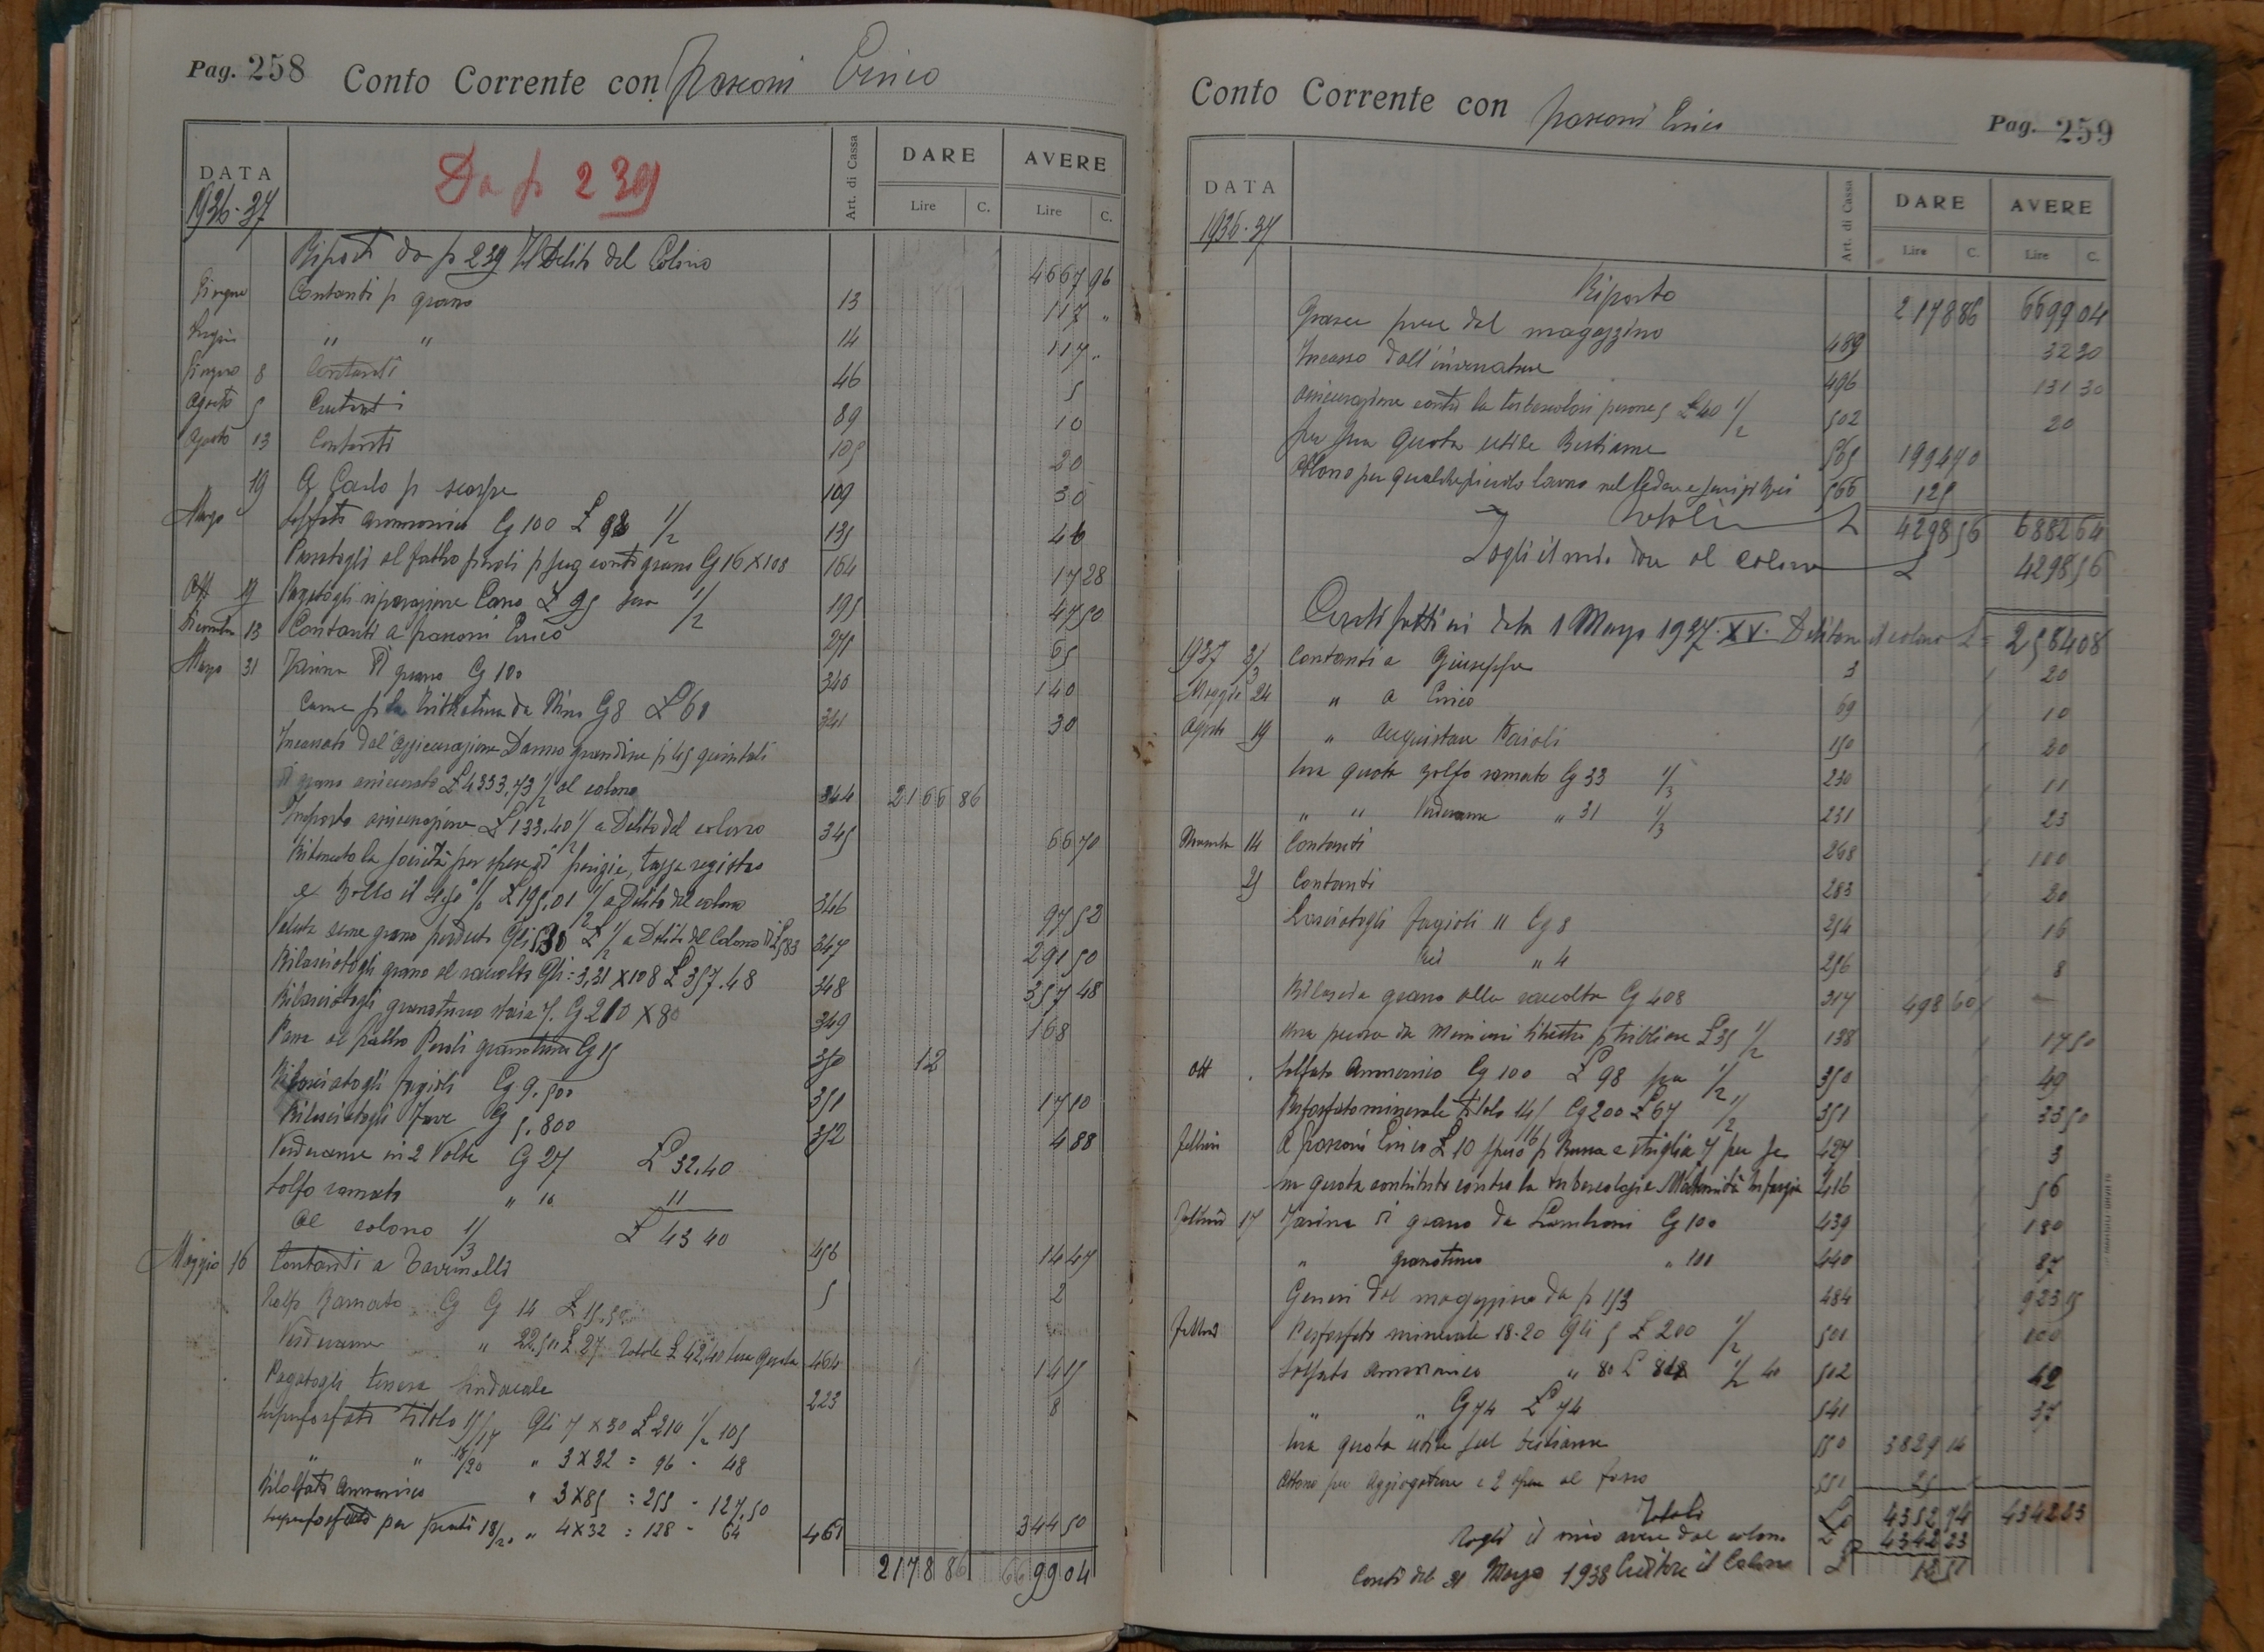 Pag. 258 Conto Corrente con Pasconi Enrico
DATA Da p 239 Art. di Cassa DARE AVERE
1936-37 Lire C. Lire C.
Riporti da p 239 Debito del Colono 4667 96
Giugno Contanti p grano 13 117 "
Luglio " " 14 117 "
Giugno 8 Contanti 46 5
Agosto 5 Contanti 89 10
Agosto 13 Contanti 105 20
19 A Carlo p scarpe 109 30
Marzo Solfato ammonico Cg 100 £ 98 1/2 135
al fabbro p grano Cg 16 X 108 164 17 28
Ott 19 Pagatogli riparazione £ 95 1/2 195 47 50
Dicembre 13 Contanti a Pasconi Enrico 275 65
Marzo 31 Farina di grano Cg 100 340 140
Carne p la da Nino Cg 8 £ 60 341 30
Incassato dal' Assicurazione Danno grandine p quintali
di grano assicurato £ 4333,73 1/2 al colono 344 2166 86
Importo assicurazione £ 133.40 1/2 a Debito del colono 345 66 70
Ritenuto la Società per spese di perizie, tassa registro
e Bollo il 4,50 % £ 195,01 1/2 a Debito del colono 346 97 52
Valuta seme grano perduto a Debito del Colono 347 291 50
Rilasciatogli grano al raccolto Qli = 3,31 X 108 £ 357.48 348 357 48
Rilasciatogli granoturco staia 7. Cg 210 X 80 349 168
al fabbro granoturco Cg 15 350 12
Rilasciatogli fagioli Cg 9.500 351 17 10
Rilasciatogli Fave Cg 5.800 352 4 88
Verderame in 2 Volte Cg 27 £ 32.40
Solfo ramato " 10 11
al colono 1/3 £ 43 40 456 14 47
Maggio 16 Contanti a 5 2
Zolfo Ramato Cg 14 £ 15.50
Verderame " 22.500 £ 27 Totale £ 42,40 sua quota 464 14 15
Pagatogli tessera Sindacale 223 8
Superfosfato titolo 15/17 Qli 7 X 30 £ 210 1/2 105
" " 18/20 " 3 X 32 = 96 - 48
Ammonico " 3 X 85 = 255 - 127,50
Superfosfato per prati 18/20 " 4 X 32 = 128 - 64 461 344 50
2178 86 6699 04
Conto Corrente con Pasconi Enrico Pag. 259
DATA Art. di Cassa DARE AVERE
1936-37 Lire C. Lire C.
Riporto 2178 86 6699 04
prese dal magazzino 489 32 30
Incasso dall' 496 131 30
assicurazione contro la tubercolosi persone 5 £ 40 1/2 502 20
per sua quota utile Bestiame 565 1994 70
per qualche piccolo lavoro nel 566 125
Totali £ 4298 56 6882 64
Togli il mio dare al colono £ 4298 56
Conti fatti in data 1 Marzo 1937. XV. Debitore il colono £ = 2584 08
1937 3/3 Contanti a Giuseppe 3 20
Maggio 24 " a Enrico 69 10
Agosto 19 " acquistare 150 20
sua quota zolfo ramato Cg 33 1/3 230 11
" " Verderame " 31 1/3 231 23
Novembre 14 Contanti 268 100
25 Contanti 283 20
Lasciatogli fagioli Cg 8 254 16
" 4 256 8
Rilascia grano alla raccolta Cg 408 317 498 60
una pecora da p £ 35 1/2 138 17 50
Ott Solfato Ammonico Cg 100 £ 98 1/2 350 49
Perfosfato minerale titolo 14/16 Cg 200 £ 67 1/2 351 33 50
Febbraio a Pasconi Enrico £ 10 p e 7 per 427 3
quota contributo contro la tubercolosi Maternità 416 56
Febbraio 17 Farina di grano da Cg 100 439 180
" granoturco " 100 440 87
Generi dal magazzino da p 153 484 923 15
Febbraio Perfosfato minerale 18-20 Qli 5 £ 200 1/2 501 100
Solfato ammonico " 80 £ 1/2 40 502
" " Cg 74 £ 74 541 37
sua quota utile sul bestiame 550 3829 14
per e 2 opere al fosso 551 25
Totali £ 4352 74 4342 23
Togli il mio avere dal colono £ 4342 23
Conti del 31 Marzo 1938 Creditore il Colono £